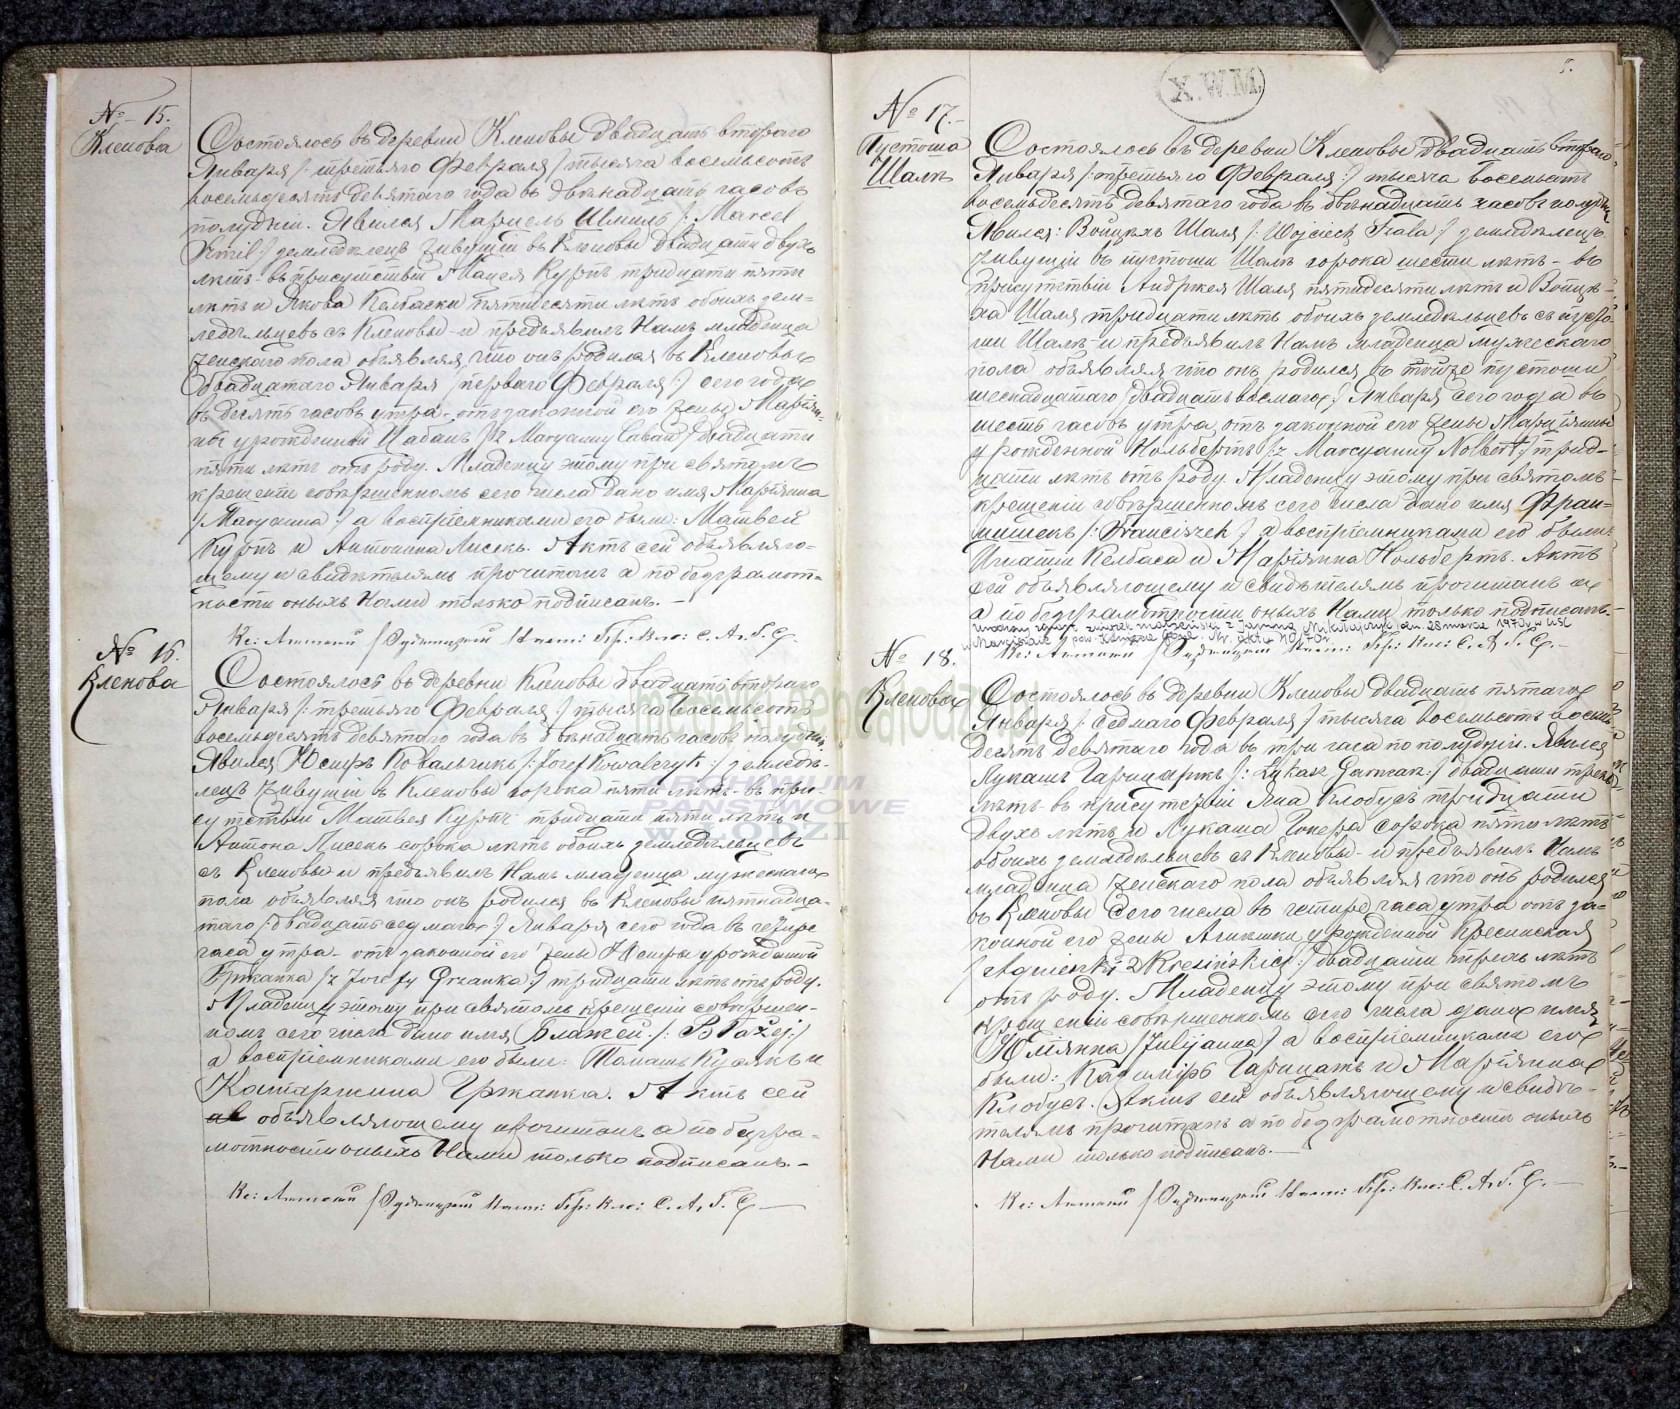 № 15.
Кленова
Состоялось въ деревни Кленовы двадцать втораго
Января /: третьяго Февраля / тысяча восемьсотъ
восемьдесятъ девятаго года въ двѣнадцать часовъ
полудни. Явился Марцель Шмиль /: Marcel
Szmil :/ земледѣлецъ живущій въ Кленовы двадцати двухъ
лѣтъ - въ присутствіи Мацея Курпъ тридцати пяти
лѣтъ и Якова Келбаски пятидесяти лѣтъ обоихъ зем=
ледѣльцевъ съ Кленовы - и предъявилъ Намъ младенца
женскаго пола объявляя, что онъ родился въ Кленовы
двадцатаго Января /перваго Февраля :/ сего года
въ десять часовъ утра - отъ законной его жены Маріян-
ны урожденной /z Maryanny / двадцати
пяти лѣтъ отъ роду. Младенцу этому при святомъ
крещеніи совершенномъ сего числа дано имя Маріянна
/Maryanna :/ а воспріемниками его были: Матвей
Курпъ и Антонина Лисекъ. Актъ сей объявляю=
щему и свидѣтелямъ прочитанъ а по безграмот=
ности оныхъ Нами только подписанъ. —
Кс: Антоній
№ 16.
Кленова
Состоялось въ деревни Кленовы двадцать втораго
Января /: третьяго Февраля :/ тысяча восемьсотъ
восемьдесятъ девятаго года въ двѣнадцать часовъ полудни.
Явился Юсифъ Ковальчикъ /: Józef Kowalczyk :/ земледѣ-
лецъ живущій въ Кленовы сорока пяти лѣтъ - въ при-
сутствіи Матвея Курпъ тридцати пяти лѣтъ и
Антона Лисекъ сорока лѣтъ обоихъ земледѣльцевъ
съ Кленовы и предъявилъ Намъ младенца мужескаго
пола объявляя что онъ родился въ Кленовы пятнадца-
таго /: двадцать седмаго :/ Января сего года въ четыре
часа утра - отъ законной его жены Юсифы урожденной
Гржанка /z Józefy Grzanka :/ тридцати лѣтъ отъ роду.
Младенцу этому при святомъ крещеніи совершен-
номъ сего числа дано имя Блажей /: Błażej :/
а воспріемниками его были: Томашъ и
Катаржина Гржанка. Актъ сей
объявляющему прочитанъ а по безгра-
мотности оныхъ Нами только подписанъ. —
Кс: Антоній
X.W.M.
№ 17.
Пустоша
Шалѣ
Состоялось въ деревни Кленовы двадцать втораго
Января /: третьяго Февраля :/ тысяча восемьсотъ
восемьдесятъ девятаго года въ двѣнадцать часовъ полудни
Явился: Войцѣхъ Шаля /: Wojciech :/ земледѣлецъ
живущій въ пустоши Шалѣ сорока шести лѣтъ - въ
присутствіи Андржея Шаля пятидесяти лѣтъ и Войцѣ-
ха Шаля тридцати лѣтъ обоихъ земледѣльцевъ съ пусто-
ши Шалѣ - и предъявилъ Намъ младенца мужескаго
пола объявляя что онъ родился въ тойже пустоши
шестнадцатаго /двадцать восмаго :/ Января сего года въ
шесть часовъ утра отъ законной его жены Маріянны
урожденной Нольбертъ /z Maryanny Nolbert :/ трид-
цати лѣтъ отъ роду. Младенцу этому при святомъ
крещеніи совершенномъ сего числа дано имя Фран-
цишекъ /: Franciszek :/ а воспріемниками его были:
Игнатій Келбаса и Маріянна Нольбертъ. Актъ
сей объявляющему и свидѣтелямъ прочитанъ
а по безграмотности оныхъ Нами только подписанъ.
28 marca 1970r w USC
Nr. aktu 10/70r
Кс: Антоній
№ 18.
Кленова
Состоялось въ деревни Кленовы двадцать пятаго
Января /: седмаго Февраля :/ тысяча восемьсотъ восемь-
десятъ девятаго года въ три часа по полудни. Явился
Лукашъ /: Łukasz Garncarz :/ двадцати трехъ
лѣтъ - въ присутствіи Яна Клобусъ тридцати
двухъ лѣтъ и Лукаша сорока пяти лѣтъ
обоихъ земледѣльцевъ съ Кленовы - и предъявилъ Намъ
младенца женскаго пола объявляя что онъ родился
въ Кленовы сего числа въ четыре часа утра отъ за=
конной его жены Агнешки урожденной Кресинская
/Agnieszki z Kresińskich :/ двадцати трехъ лѣтъ
отъ роду. Младенцу этому при святомъ
крещеніи совершенномъ сего числа дано имя
Юліянна /Julijanna / а воспріемниками его
были: Казиміръ и Маріянна
Клобусъ. Актъ сей объявляющему и свидѣ-
телямъ прочитанъ а по безграмотности оныхъ
Нами только подписанъ. —
Кс: Антоній
genealodzy.pl
ARCHIWUM
PAŃSTWOWE
w ŁODZI